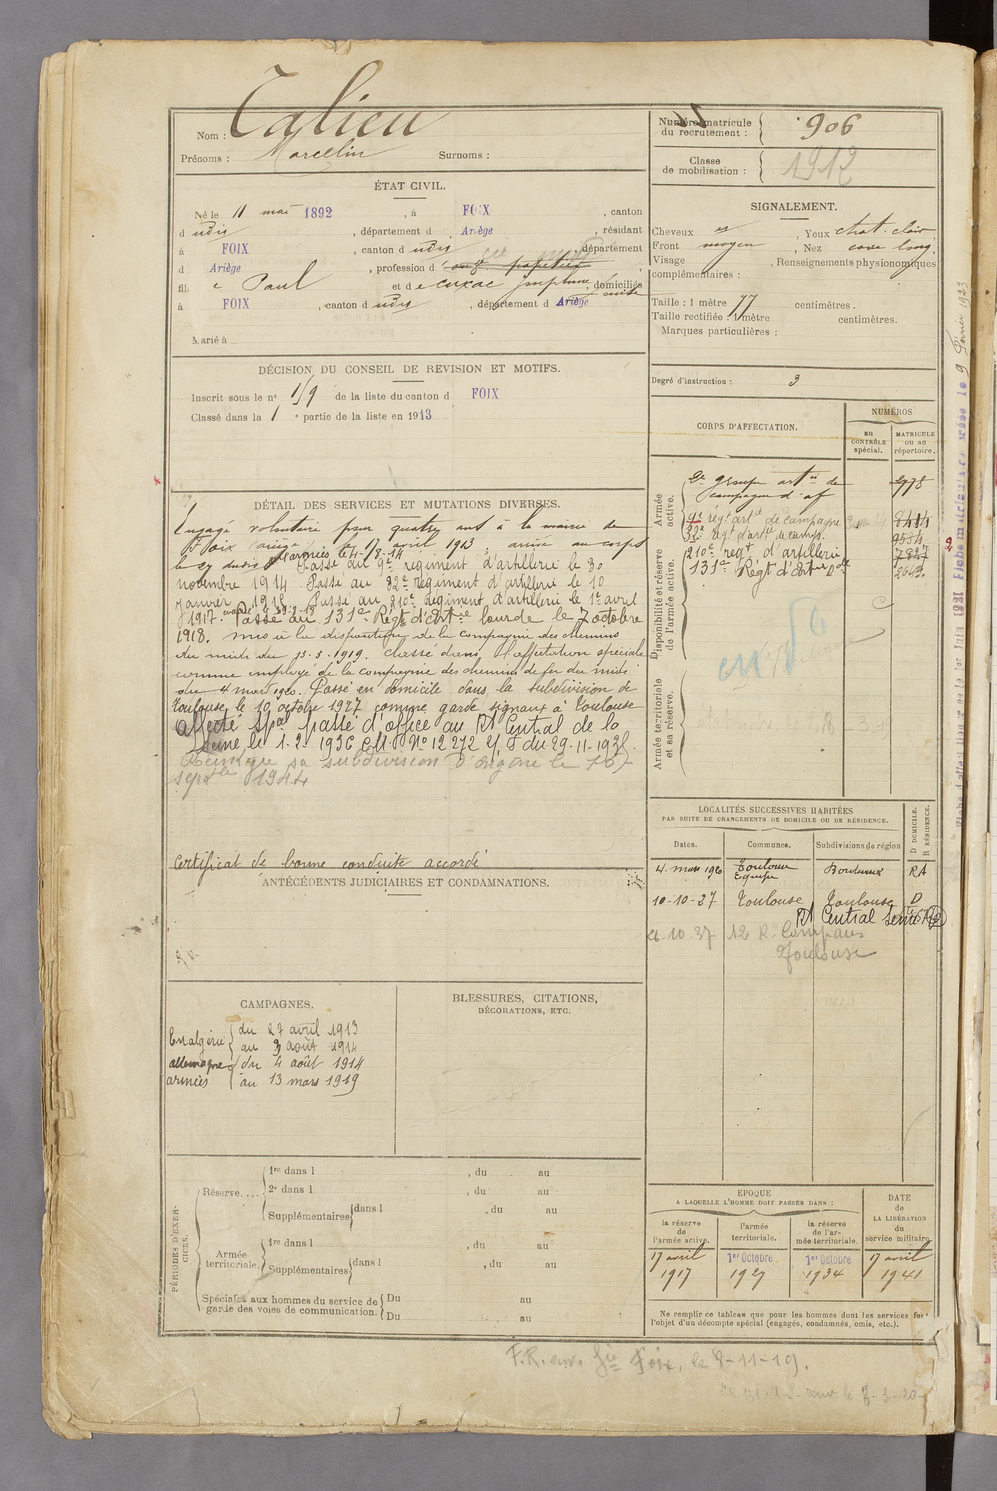 Nom : Talieu
Prénoms : Marcellin Surnoms :
Numéro matricule du recrutement : 906
Classe de mobilisation : 1912
ÉTAT CIVIL.
Né le 11 mai 1892, à FOIX, canton
d udis, département d Ariège, résidant
à FOIX, canton d udis, département
d Ariège, profession d
fils de Paul et de Cuxac Joséphine, domiciliés
à FOIX, canton d udis, département d Ariège
Marié à
SIGNALEMENT.
Cheveux, Yeux chat. clair
Front moyen, Nez cave long
Visage, Renseignements physionomiques
complémentaires :
Taille : 1 mètre 77 centimètres.
Taille rectifiée : 1 mètre centimètres.
Marques particulières :
Degré d'instruction : 3
DÉCISION DU CONSEIL DE REVISION ET MOTIFS.
Inscrit sous le n° 119 de la liste du canton d FOIX
Classé dans la 1e partie de la liste en 1913
DÉTAIL DES SERVICES ET MUTATIONS DIVERSES.
Engagé volontaire pour quatre ans à la mairie de
Foix (ariège) le 17 avril 1913, arrivé au corps
le 27 dudit. aux armées le 4-8-14
Passé au 9e régiment d'artillerie le 30
novembre 1914 Passé au 32e régiment d'artillerie le 10
janvier 1915 Passé au 210e Régiment d'artillerie le 1er avril
1917. Passé au 131e Régt d'Artie lourde le 7 octobre
1918. mis à la disposition de la compagnie des chemins
du midi du 13-3-1919. Classé dans l'affectation spéciale
comme employé de la compagnie des chemins de fer du midi
du 4 mars 1920. Passé en domicile dans la subdivision de
Toulouse le 10 octobre 1927 comme garde signaux à Toulouse
Affecté Spal passé d'office au Rt Central de la
Seine le 1-2-1936 C.M. N° 12272 du 29-11-1935.
sa subdivision d'origine le 10
septbre 1944
Certificat de bonne conduite accordé
ANTÉCÉDENTS JUDICIAIRES ET CONDAMNATIONS.
CORPS D'AFFECTATION.
NUMÉROS
au CONTRÔLE spécial.
MATRICULE ou au répertoire.
Armée active.
2e groupe artie de
campagne d'af 2778
9e régt artie de campagne 8414
32e régt d'artie de camp. 9554
Disponibilité et réserve de l'armée active.
210e regt d'artillerie 7827
131e Régt d'Artie 2643.
Armée territoriale et sa réserve.
LOCALITÉS SUCCESSIVES HABITÉES
PAR SUITE DE CHANGEMENTS DE DOMICILE OU DE RÉSIDENCE.
Dates. Communes. Subdivisions de région D DOMICILE. R RÉSIDENCE.
4. mars 1920 Toulouse Bordeaux RA
10-10-27 Toulouse Toulouse D
Rt Central Seine
26.10.37 12 R. Compans
Toulouse
CAMPAGNES.
En algérie du 27 avril 1913
au 3 août 1914
allemagne du 4 août 1914
armées au 13 mars 1919
BLESSURES, CITATIONS,
DÉCORATIONS, ETC.
PÉRIODES D'EXERCICES.
Réserve....
1re dans l , du au
2e dans l , du au
Supplémentaires dans l , du au
Armée territoriale.
1re dans l , du au
Supplémentaires dans l , du au
Spéciales aux hommes du service de garde des voies de communication.
Du au
Du au
EPOQUE
A LAQUELLE L'HOMME DOIT PASSER DANS :
la réserve de l'armée active. l'armée territoriale. la réserve de l'armée territoriale.
DATE de LA LIBÉRATION du service militaire
17 avril 1917
1er Octobre 1927
1er Octobre 1934
17 avril 1941
Ne remplir ce tableau que pour les hommes dont les services font
l'objet d'un décompte spécial (engagés, condamnés, omis, etc.).
F.R. env. Foix, le 8-11-19.